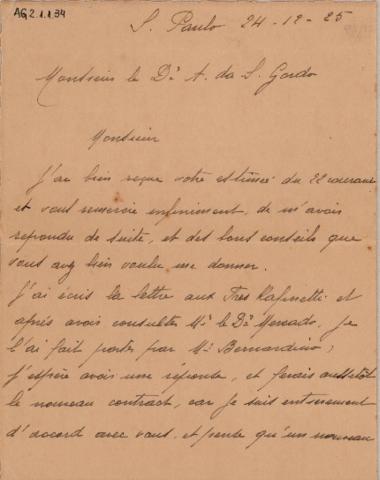 AG.2.1.1.34
S. Paulo 24-12-25
Monsieur le Dr A. da S. Gordo
Monsieur
J'ai bien reçue votre estimée du 22 courant
et vous remercie infiniment, de m'avoir
repondu de suite, et des bons conseils que
vous avez bien voulu me donner.
J'ai ecris la lettre aux et
après avoir consulter Mr le Dr Mercado. Je
l'ai fait porter par Mr Bernardino;
j'espère avoir une reponse, et ferais aussitôt
le nouveau contract, car je suis entierement
d'acord avec vous, et pense qu'un nouveau